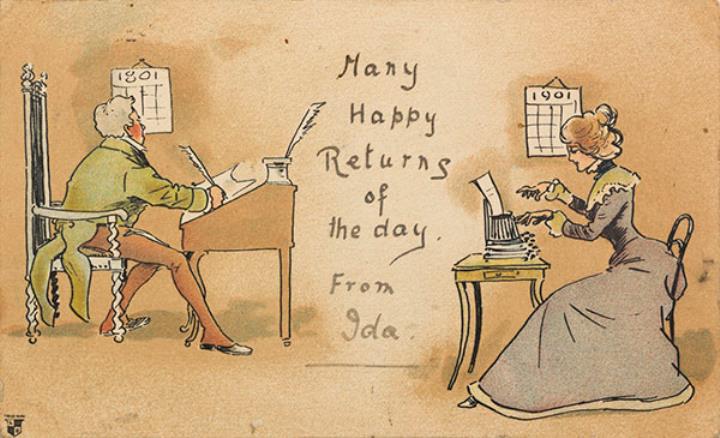 1801
Many
Happy
Returns
of
the day.
From
Ida.
1901